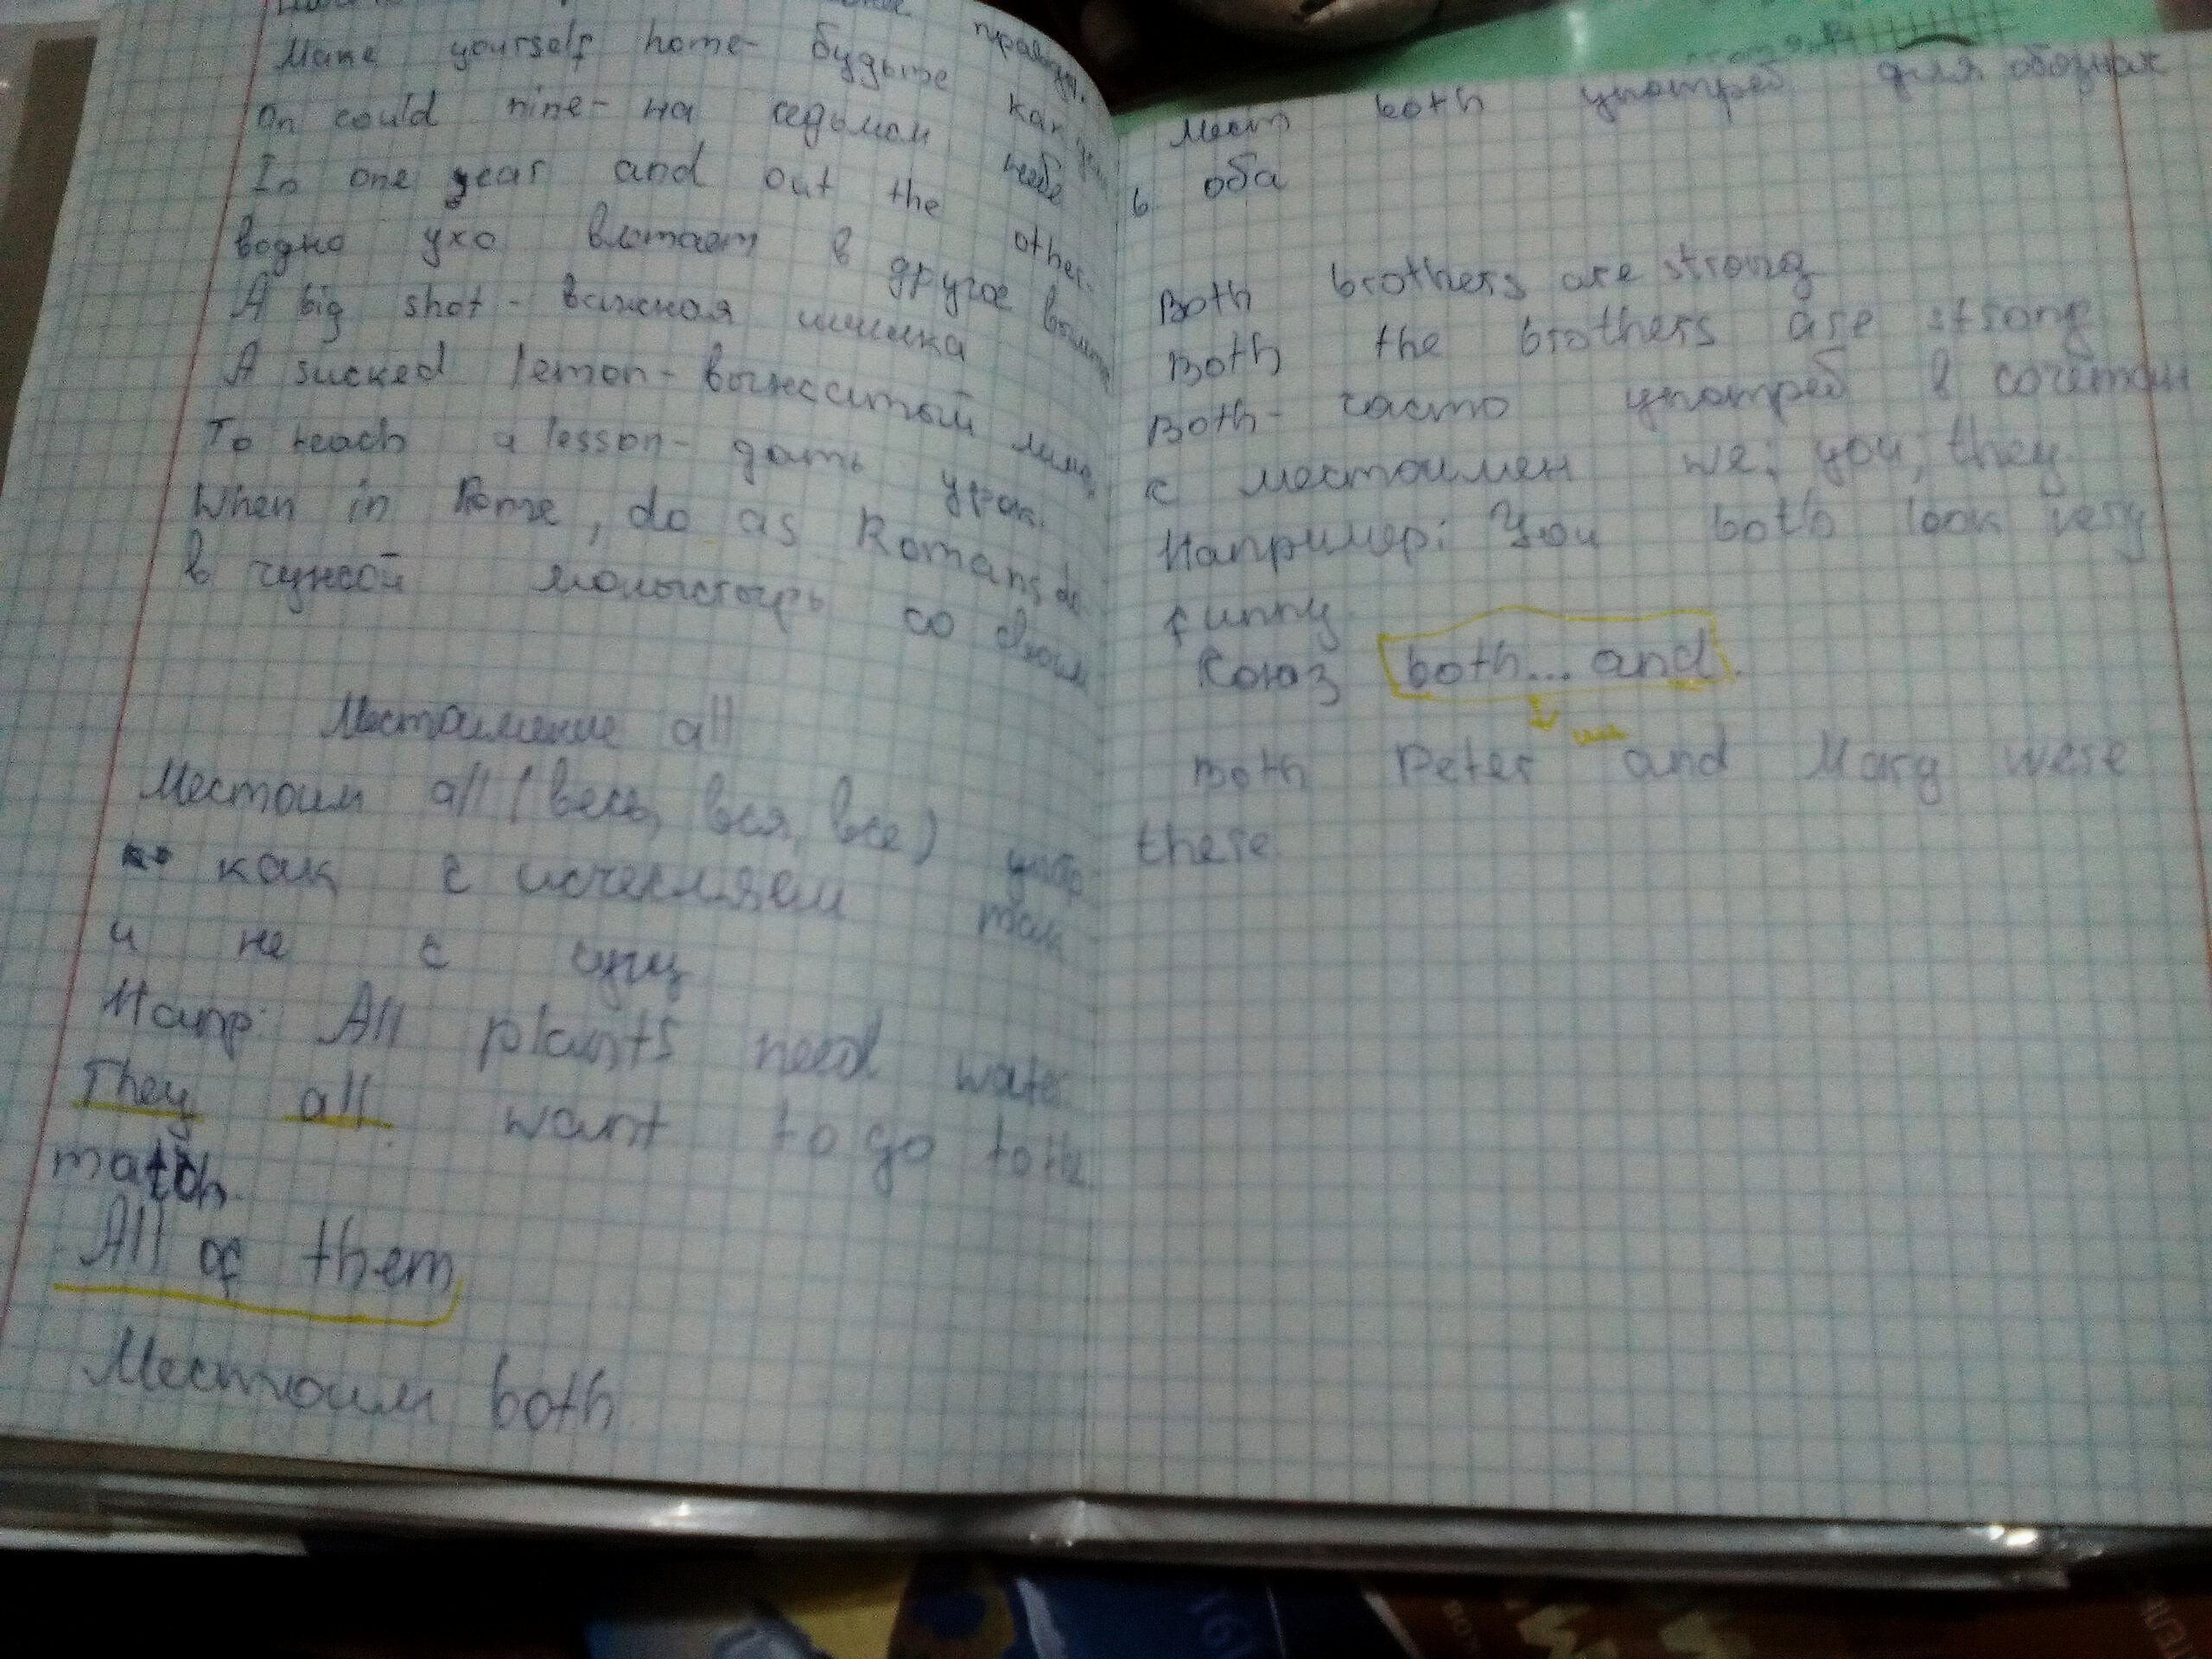 правду.
Make yourself home - будьте как
On could nine - на седьмом небе
In one year and out the other.
водно ухо влетает в другое
A big shot - важная шишка
A sucked lemon - выжситый
To teach a lesson - дать урок.
When in Rome, do as Romans do
в чужой моныстырь со своим
Местоимение all
Местоим all (весь, вся, все)
как с исчесляем так
и не с сущ
Напр: All plants need water
They all want to go to the
match.
All of them
Местоим both.
Мест both употреб для обознач
оба
Both brothers are strong
Both the brothers are strong
Both - часто употреб в сочетан
с местоимен we; you; they.
Например: You both look very
funny.
Союз both... and.
Both Peter and Mary were
there